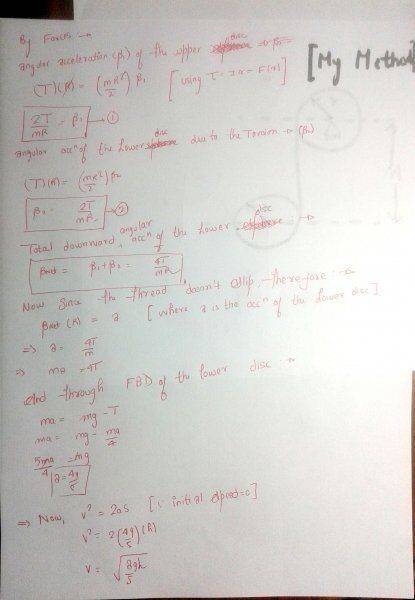 By Forces →
angular acceleration (β₁) of the upper disc
(T)(R) = (mR²/2) β₁ [using τ = Iα = F(x)]
[My Method]
2T/mR = β₁ → ①
angular accⁿ of the lower disc due to the Torsion → (β₂)
(T)(R) = (mR²/2) β₂
β₂ = 2T/mR → ②
Total downward angular accⁿ of the lower disc →
βnet = β₁ + β₂ = 4T/mR
Now Since the thread doesn't slip, therefore :-
βnet (R) = a [where a is the accⁿ of the lower disc]
⇒ a = 4T/m
⇒ ma = 4T
And through FBD of the lower disc :-
ma = mg - T
ma = mg - ma/4
5ma/4 = mg
a = 4g/5
⇒ Now, v² = 2as [∵ initial speed = 0]
v² = 2(4g/5)(h)
v = √(8gh/5)